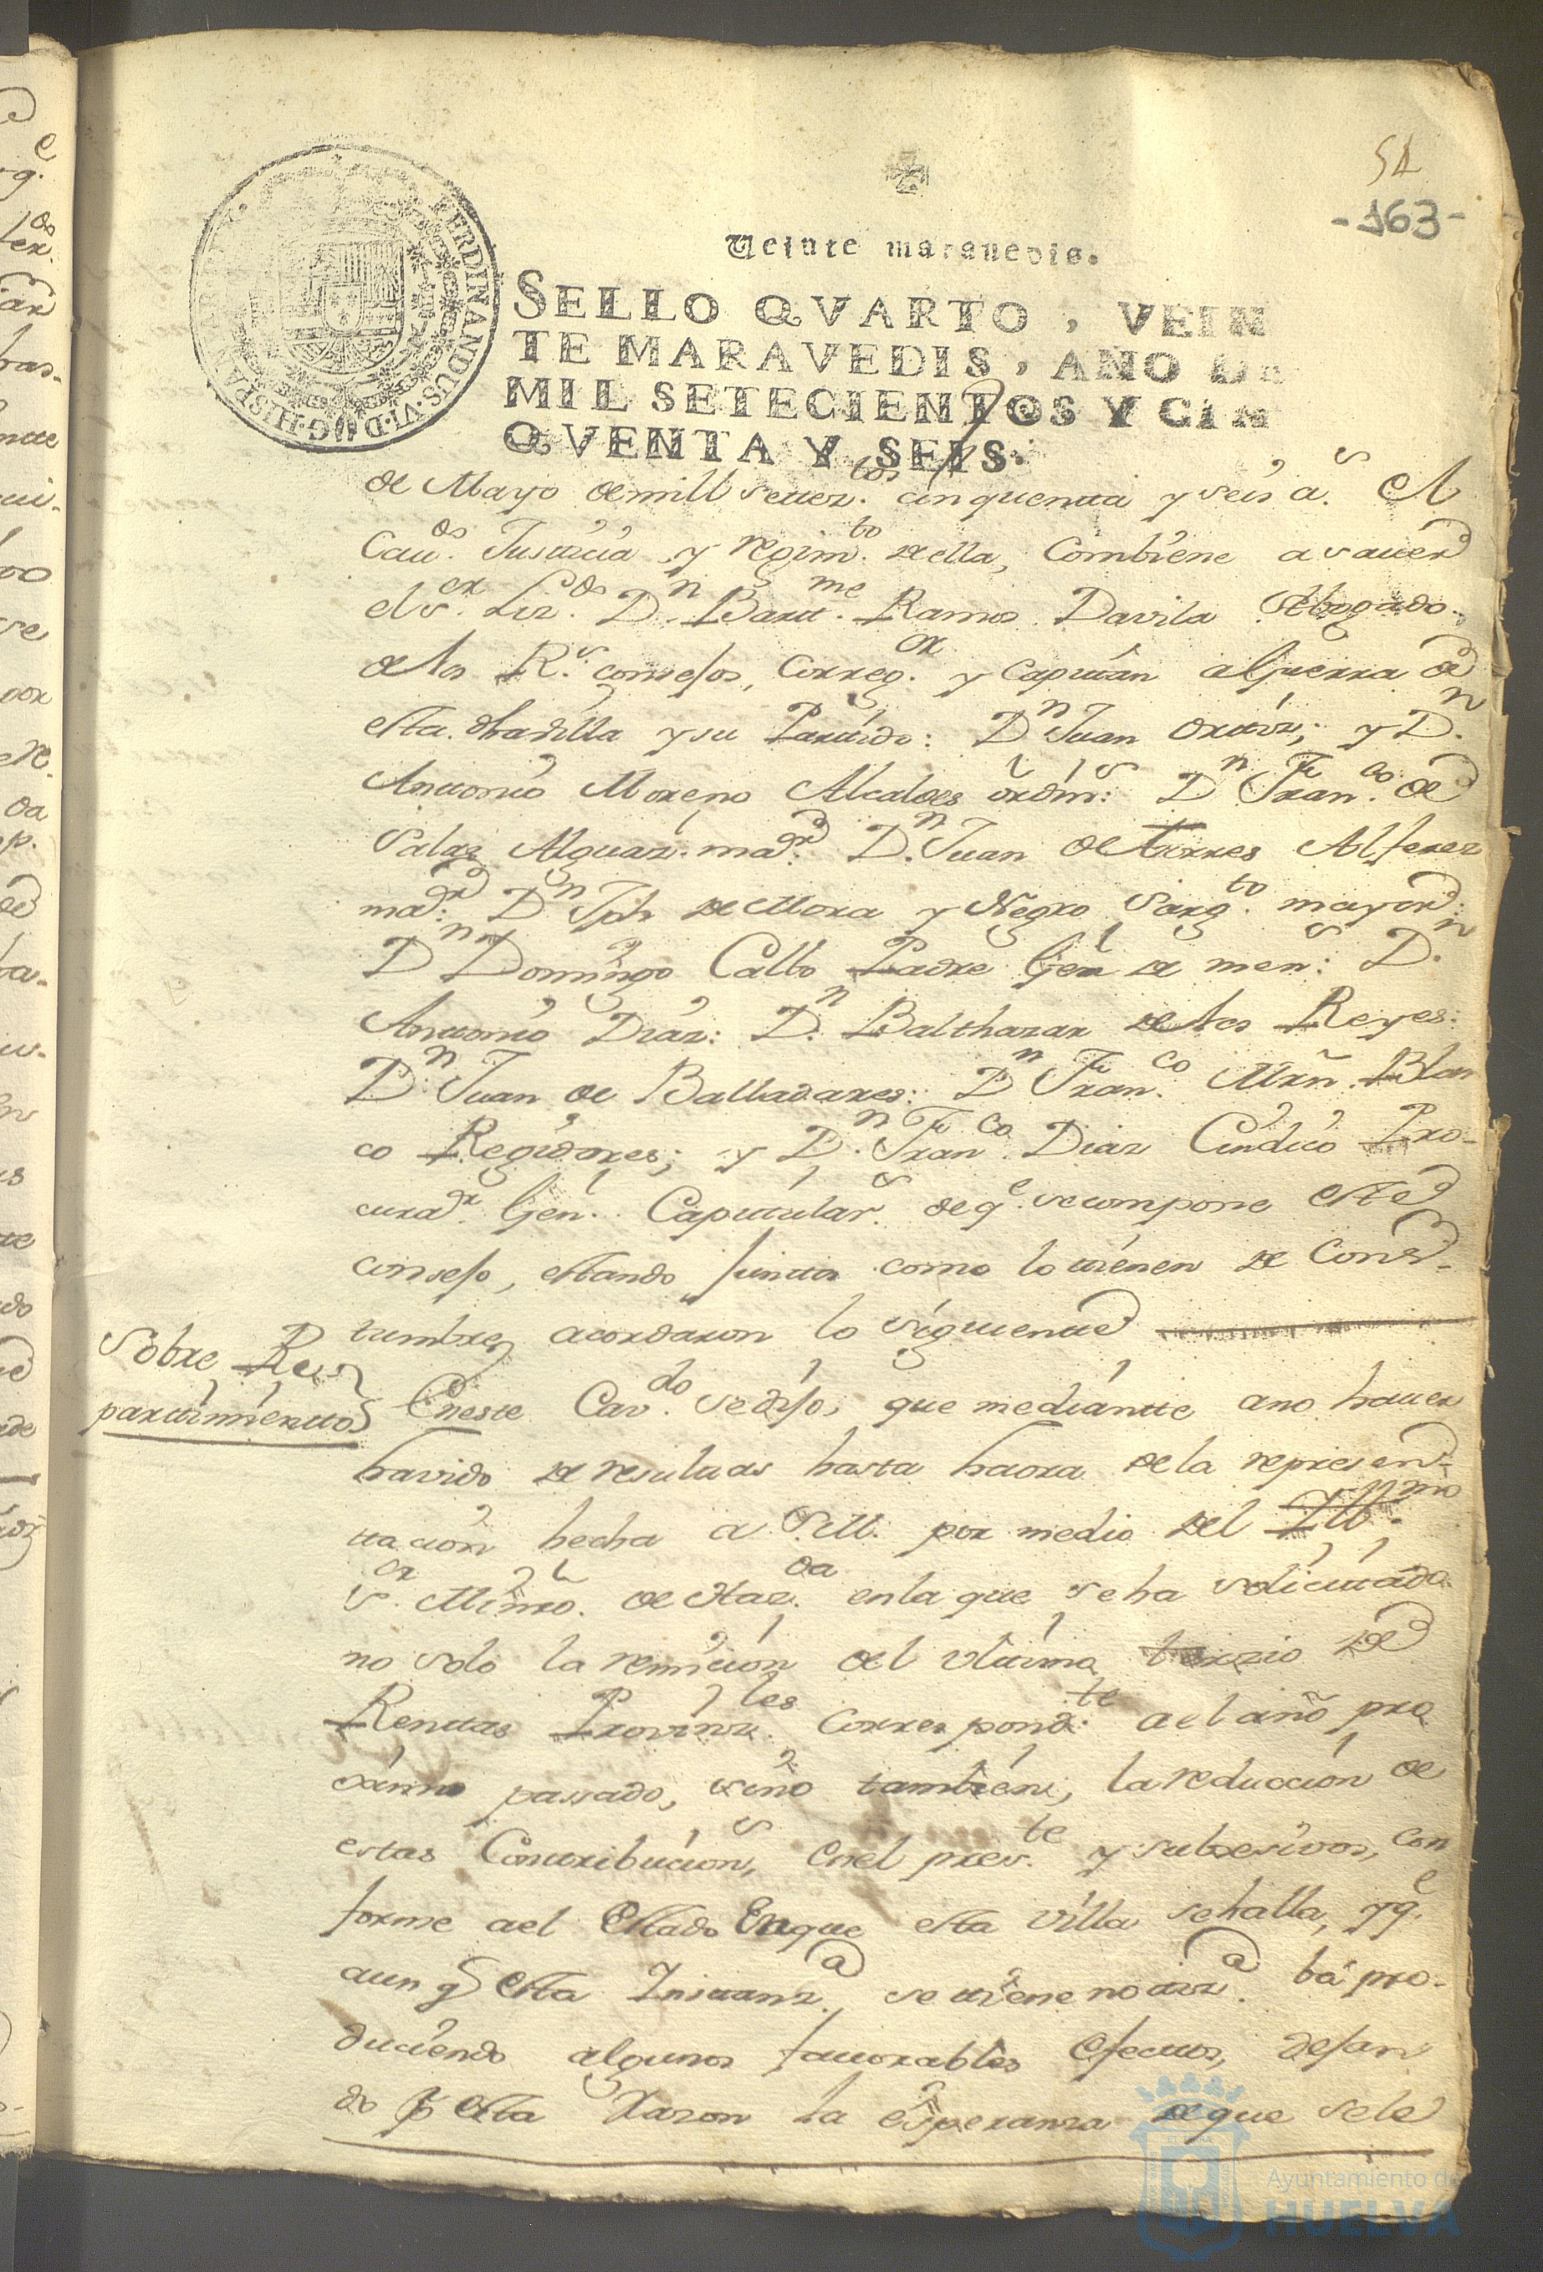 54
-163-
Veinte maravedis.
SELLO QVARTO, VEIN
TE MARAVEDIS, AÑO DE
MIL SETECIENTOS Y CIN
QVENTA Y SEIS.
FERDINANDUS·VI·D·G·HISPANIAR
de Mayo de mill setez.tos cinquenta y seis a.s El
Cav.do Justicia y regim.to de ella, Combiene a saver
el s.or Liz.do D.n Bart.me Ramos Davila Abogado
de los R.s consejos, Correg.or y Capitan a Guerra de
esta dha villa y su Partido: D.n Juan Ortiz; y D.n
Antonio Moreno Alcaldes ordin.s: D.n Fran.co de
Salas Alguaz. ma.or D.n Juan de Torres Alferez
ma.or D.n Jph de Mora y Negro Sarg.to mayor:
D.n Domingo Calbo Padre Gen.l de men.s: D.n
Antonio Diaz: D.n Balthazar de los Reyes:
D.n Juan de Balladares: D.n Fran.co Mrñ. Blan
co Regidores; y D.n Fran.co Diaz Cindico Pro-
curad.r Gen.l Capitular.s de q.e se compone este
consejo, estando juntos como lo tienen de Cons-
tumbre, acordaron lo siguiente
Sobre Re-
partimientos
En este Cav.do se dijo, que mediantte a no haver
havido de resultas hasta haora de la represen-
tacion hecha a S.M. por medio del Ill.mo
s.or Mintro. de Haz.da en la que se ha solicitado
no solo la remicion del vltimo terzio de
Rentas Provinz.les correspond.te a el año pro
ximo passado, sino tambien, la reduccion de
estas Contribucion.s, en el pres.te y subsesivos, con
forme a el Estado En que esta villa se halla, y q.e
aun q.e esta Instanz.a, se tiene notiz.a ba pro-
duciendo algunos favorables efectos, dejan
do p.r esta razon la esperanza de que se le
Ayuntamiento de
HUELVA